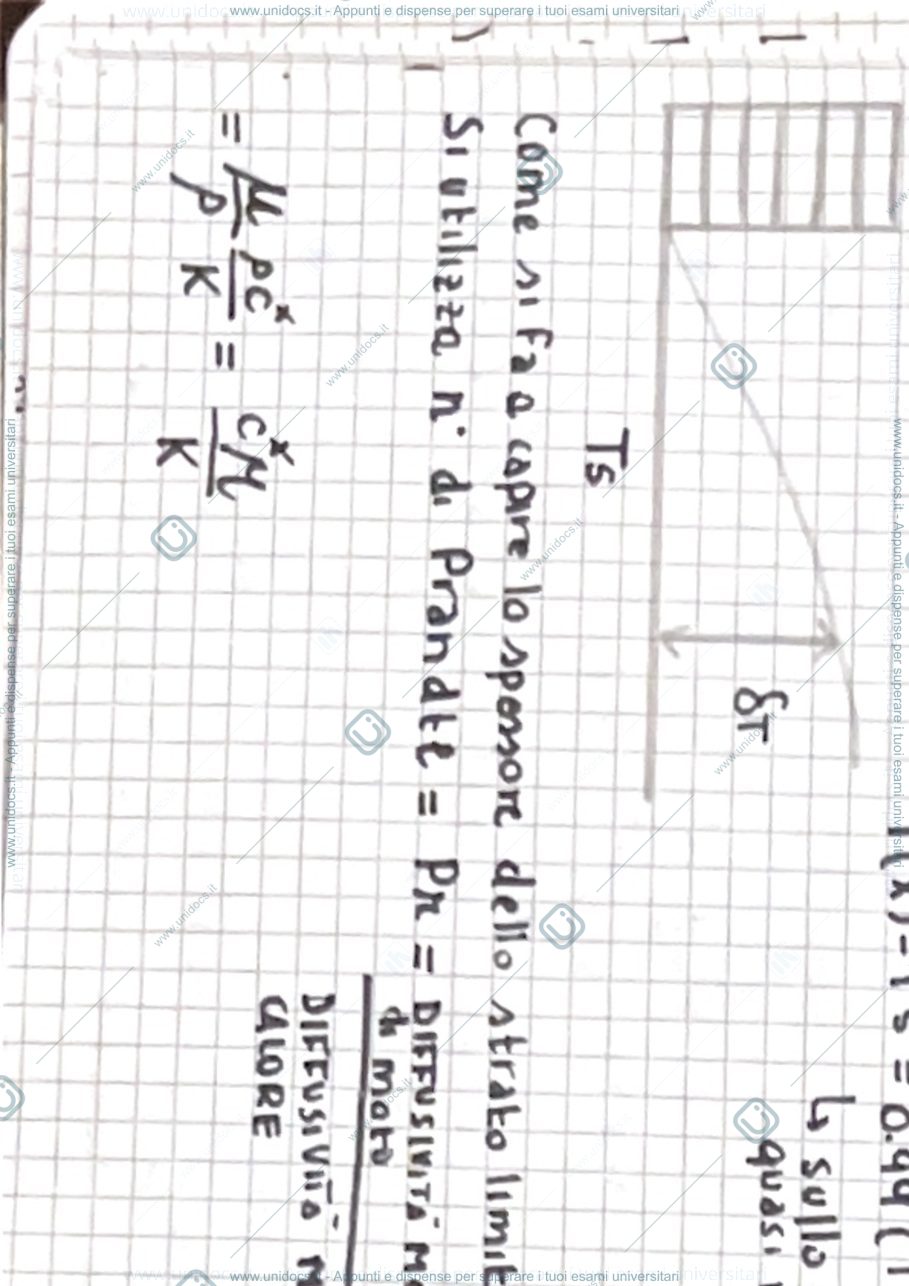 www.unidocs.it - Appunti e dispense per superare i tuoi esami universitari
= 0.99 (
↳ sullo
quasi
δT
Ts
Come si fa a capire lo spessore dello strato limit
Si utilizza n° di Prandtl = Pr = DIFFUSIVITÀ M
di moto
DIFFUSIVITÀ
CALORE
= μ/ρ ρc*/K = c*μ/K
www.unidocs.it - Appunti e dispense per superare i tuoi esami universitari
www.unidocs.it - Appunti e dispense per superare i tuoi esami universitari
www.unidocs.it - Appunti e dispense per superare i tuoi esami universitari
www.unidocs.it
www.unidocs.it
www.unidocs.it
www.unidocs.it
www.unidocs.it
www.unidocs.it